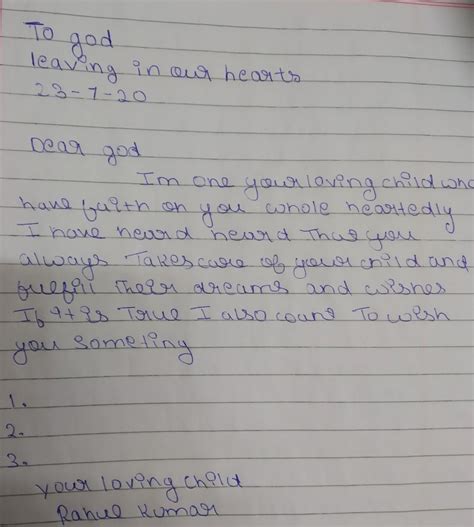 To god
leaving in our hearts
23-7-20
Dear god
Im one your loving child who
have faith on you whole heartedly
I have heard heard that you
always Takes care of your child and
fulfill their dreams and wishes
If it is True I also want To wish
you someting
1.
2.
3.
your loving child
Rahul Kumar